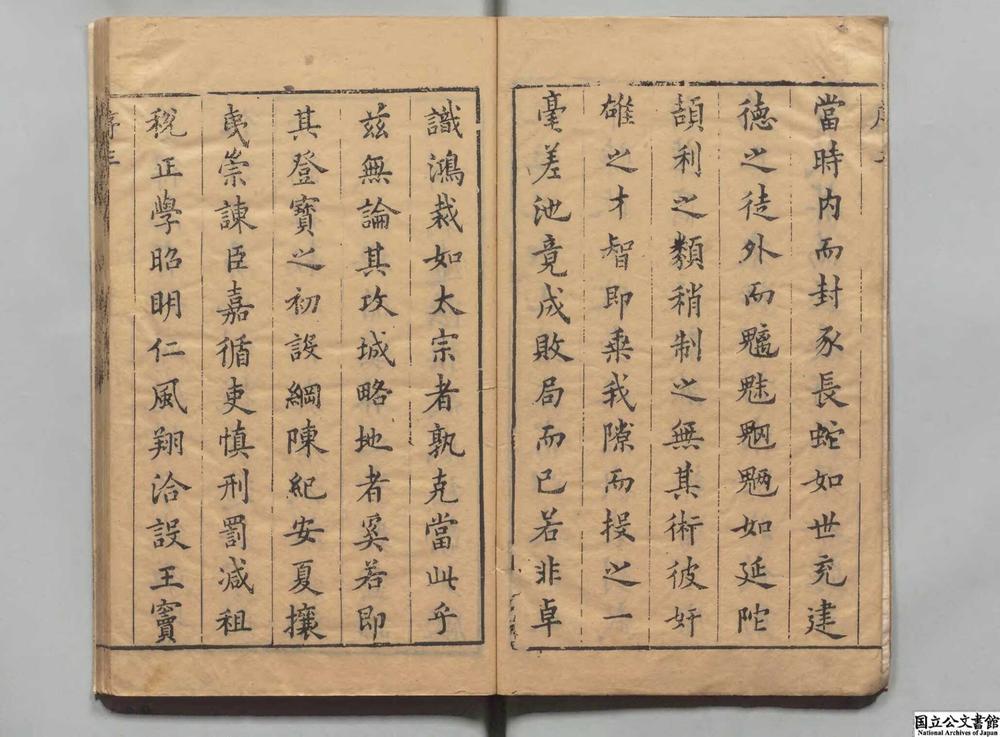 當時内而封豕長蛇如世充建
德之徒外而魑魅魍魎如延陀
頡利之類稍制之無其術彼奸
雄之才智即乘我隙而投之一
毫差池竟成敗局而已若非卓
識鴻裁如太宗者孰克當此乎
茲無論其攻城略地者奚若即
其登寶之初設綱陳紀安夏攘
夷崇諫臣嘉循吏慎刑罰减租
稅正學昭明仁風翔洽設王竇
序三
国立公文書館
National Archives of Japan